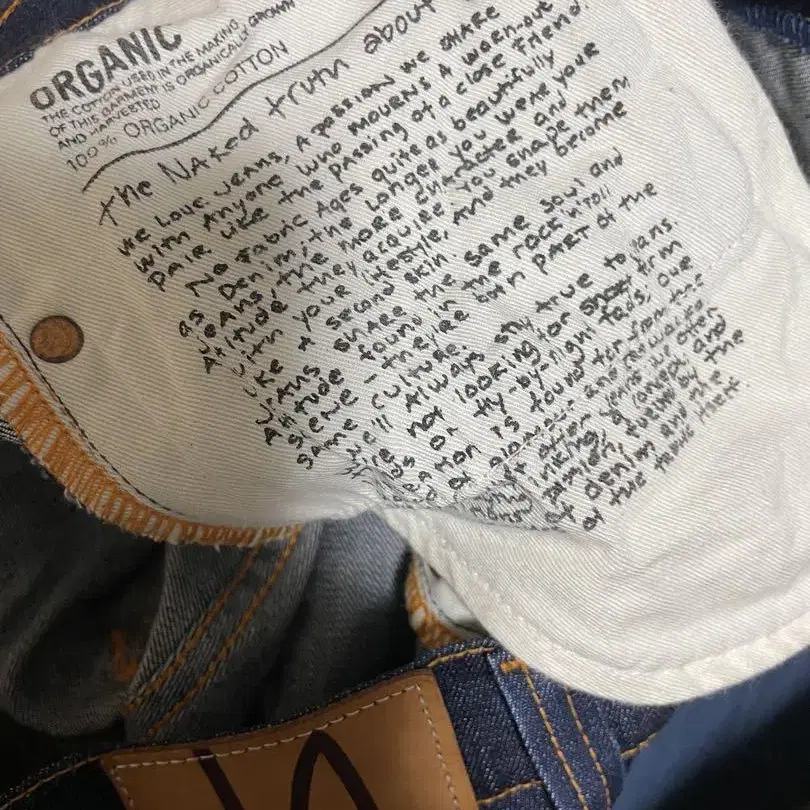 ORGANIC
THE COTTON USED IN THE MAKING
OF THIS GARMENT IS ORGANICALLY GROWN
AND HARVESTED
100% ORGANIC COTTON
the Naked truth about
We Love Jeans, A passion we share
with anyone who mourns A worn-out
pair like the passing of a close friend.
No fabric Ages quite as beautifully
as Denim; the longer you wear your
jeans, the more character and
Attitude they acquire. You shape them
with your lifestyle, and they become
like a second skin.
Jeans share the same soul and
Attitude found in the rock'n'roll
scene - they're both part of the
same culture.
We'll Always stay true to jeans.
not looking for short from
or fly-by-night fads; our
is found far from the
of glamour and runways
after years
concept, and
fueled by the
of denim and the
of the fabric itself.